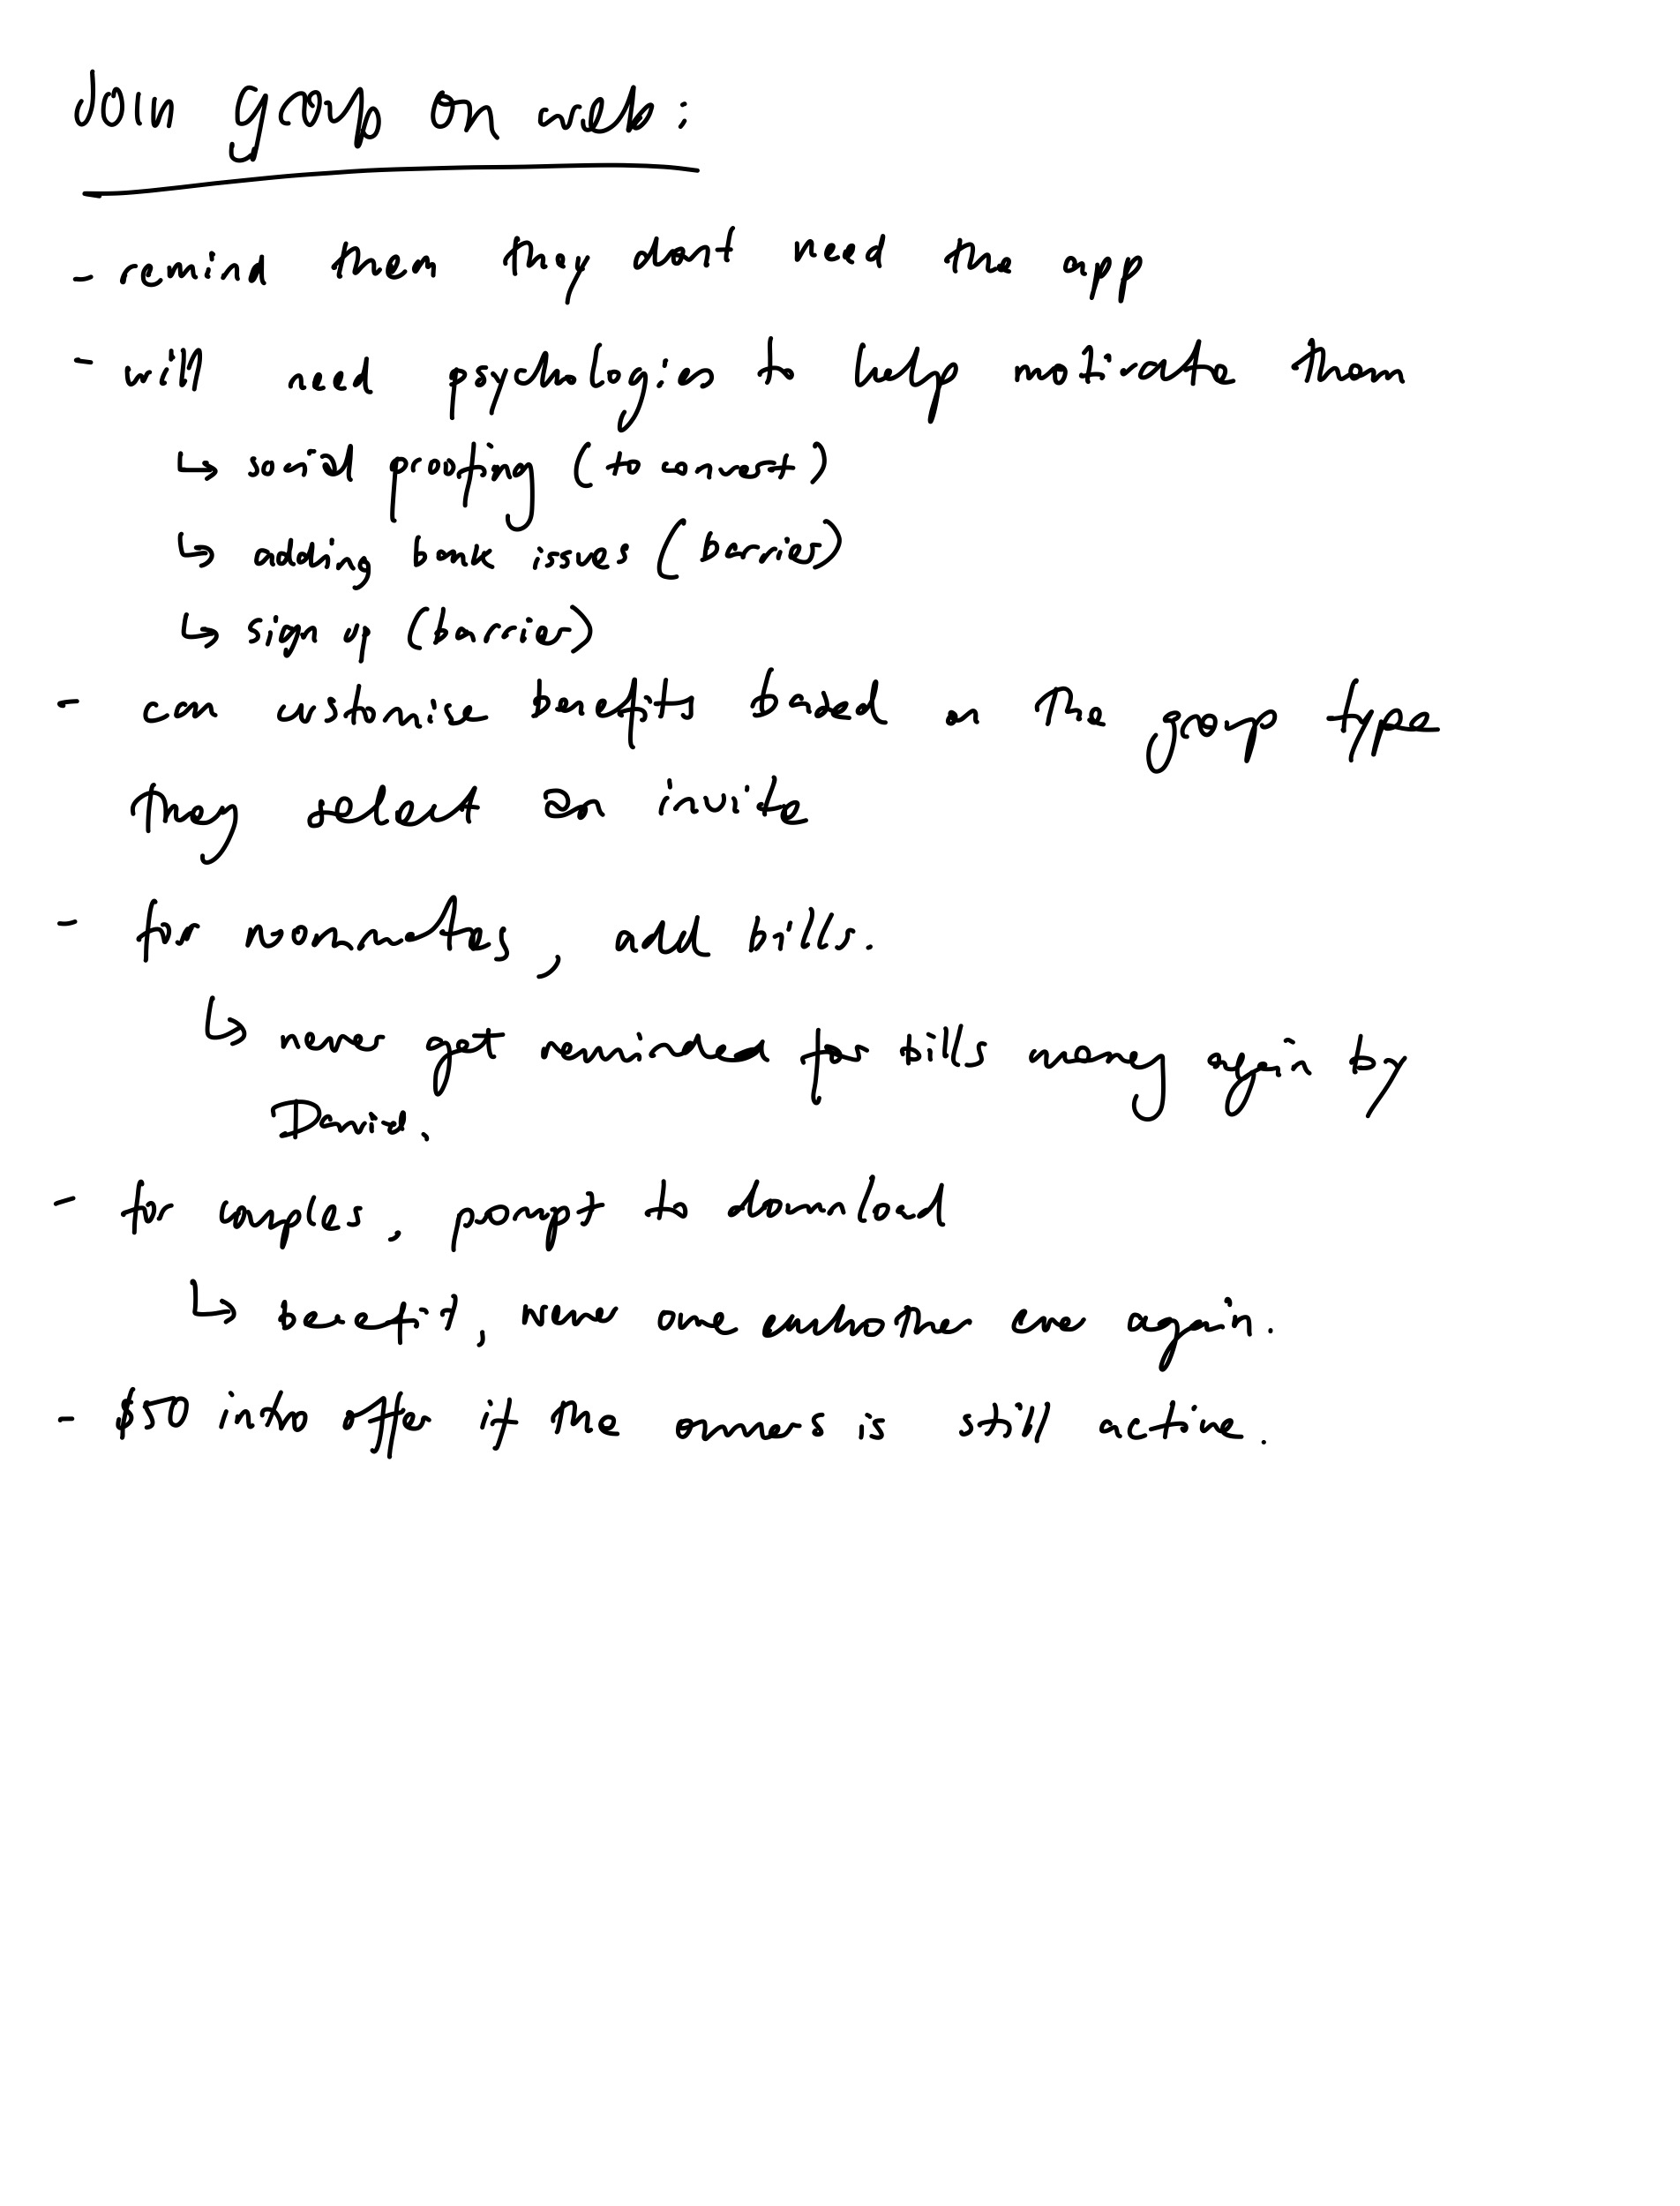 Join group on web:
- remind them they don't need the app
- will need psychologies to help motivate them
↳ social proofing (to convert)
↳ adding bank issues (barrier)
↳ sign up (barrier)
- can customise benefits based on the group type
they select on invite
- for roommates, add bills.
↳ never get reminded for bills money again by
David.
- for couples, prompt to download
↳ benefit, never owe another one again.
- $50 intro offer if the owners is still active.